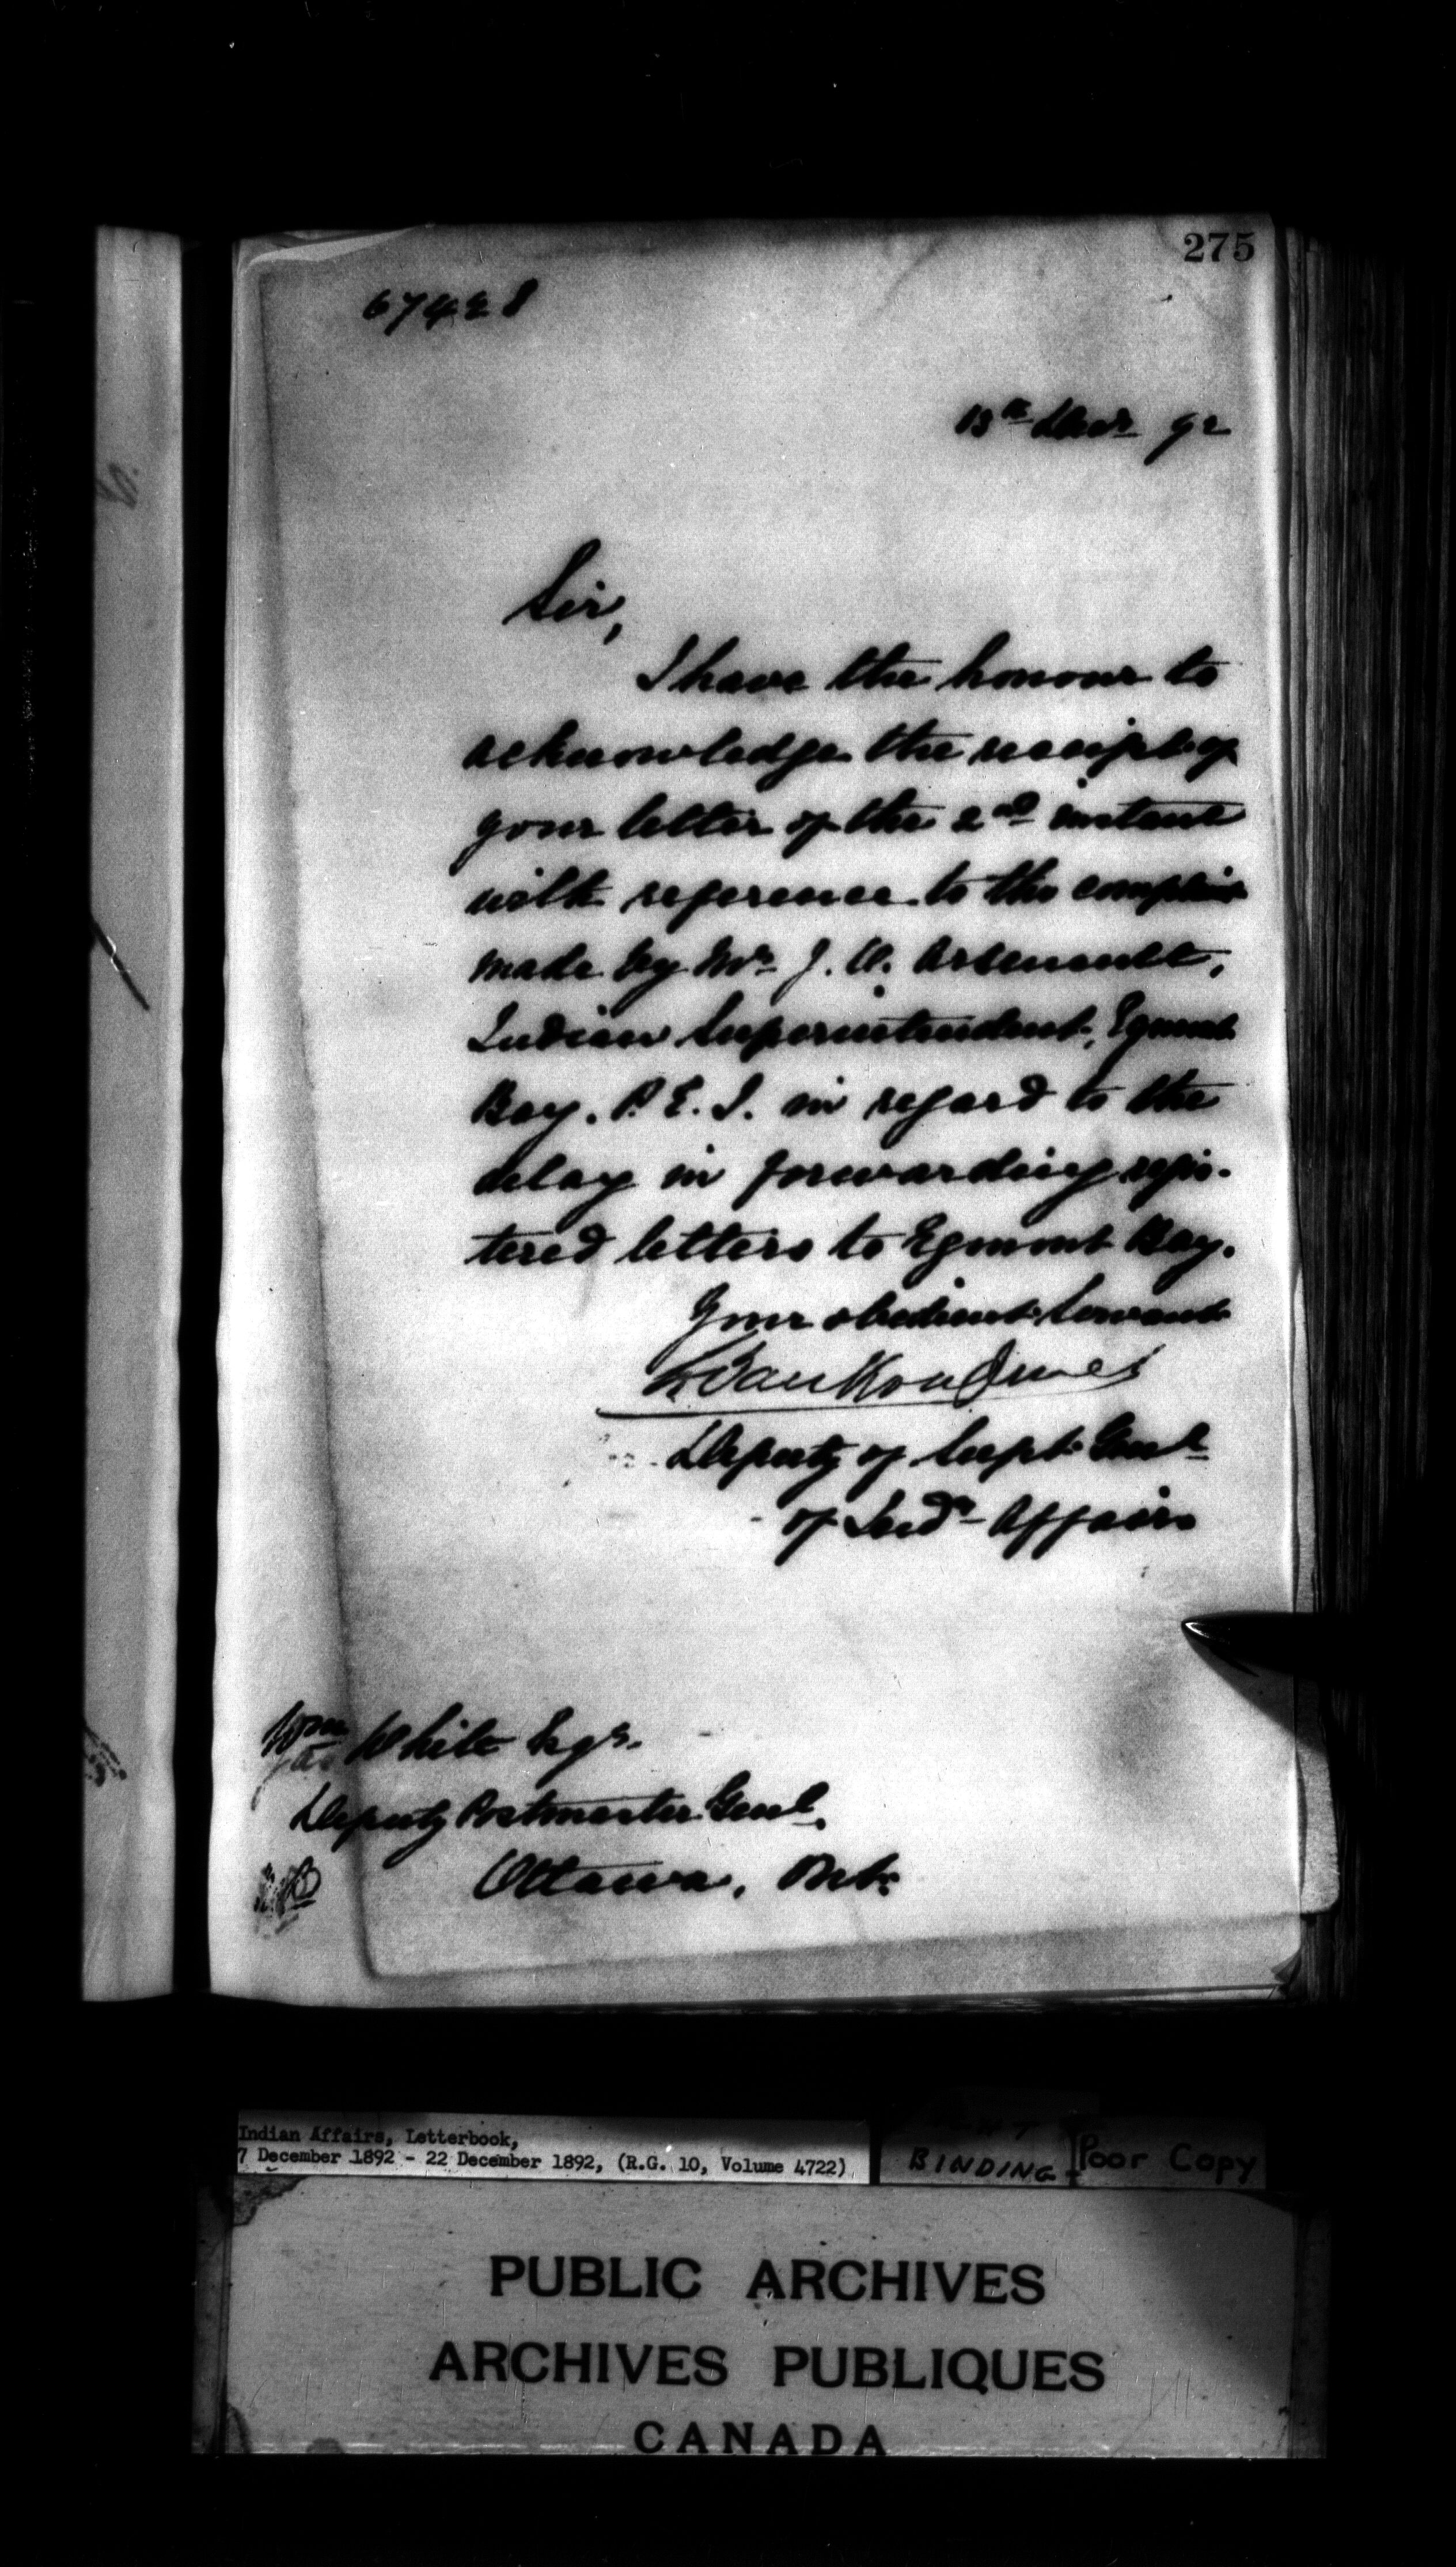 275
67428
13th Decr 92
Sir,
I have the honour to
acknowledge the receipt of
your letter of the 2nd instant
with reference to the complaint
made by Mr J. O. Arsenault,
Indian Superintendent, Egmont
Bay. P. E. I. in regard to the
delay in forwarding regis-
tered letters to Egmont Bay.
Your obedient servant
L VanKoughnet
Deputy of Supt. Genl
of Indn Affairs
Wm White Esqr.
Deputy Postmaster Genl.
Ottawa, Ont.
Indian Affairs, Letterbook,
7 December 1892 - 22 December 1892, (R.G. 10, Volume 4722)
BINDING
Poor Copy
PUBLIC ARCHIVES
ARCHIVES PUBLIQUES
CANADA